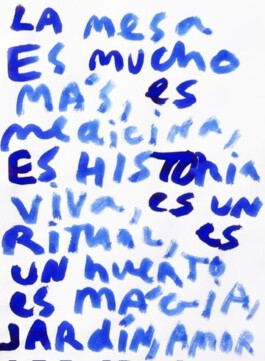 LA mesa
Es mucho
MÁS, es
medicina,
ES HISTORia
viva, es un
RiTUAL, es
UN huerto
es MAGIA,
JARDÍN, AMOR